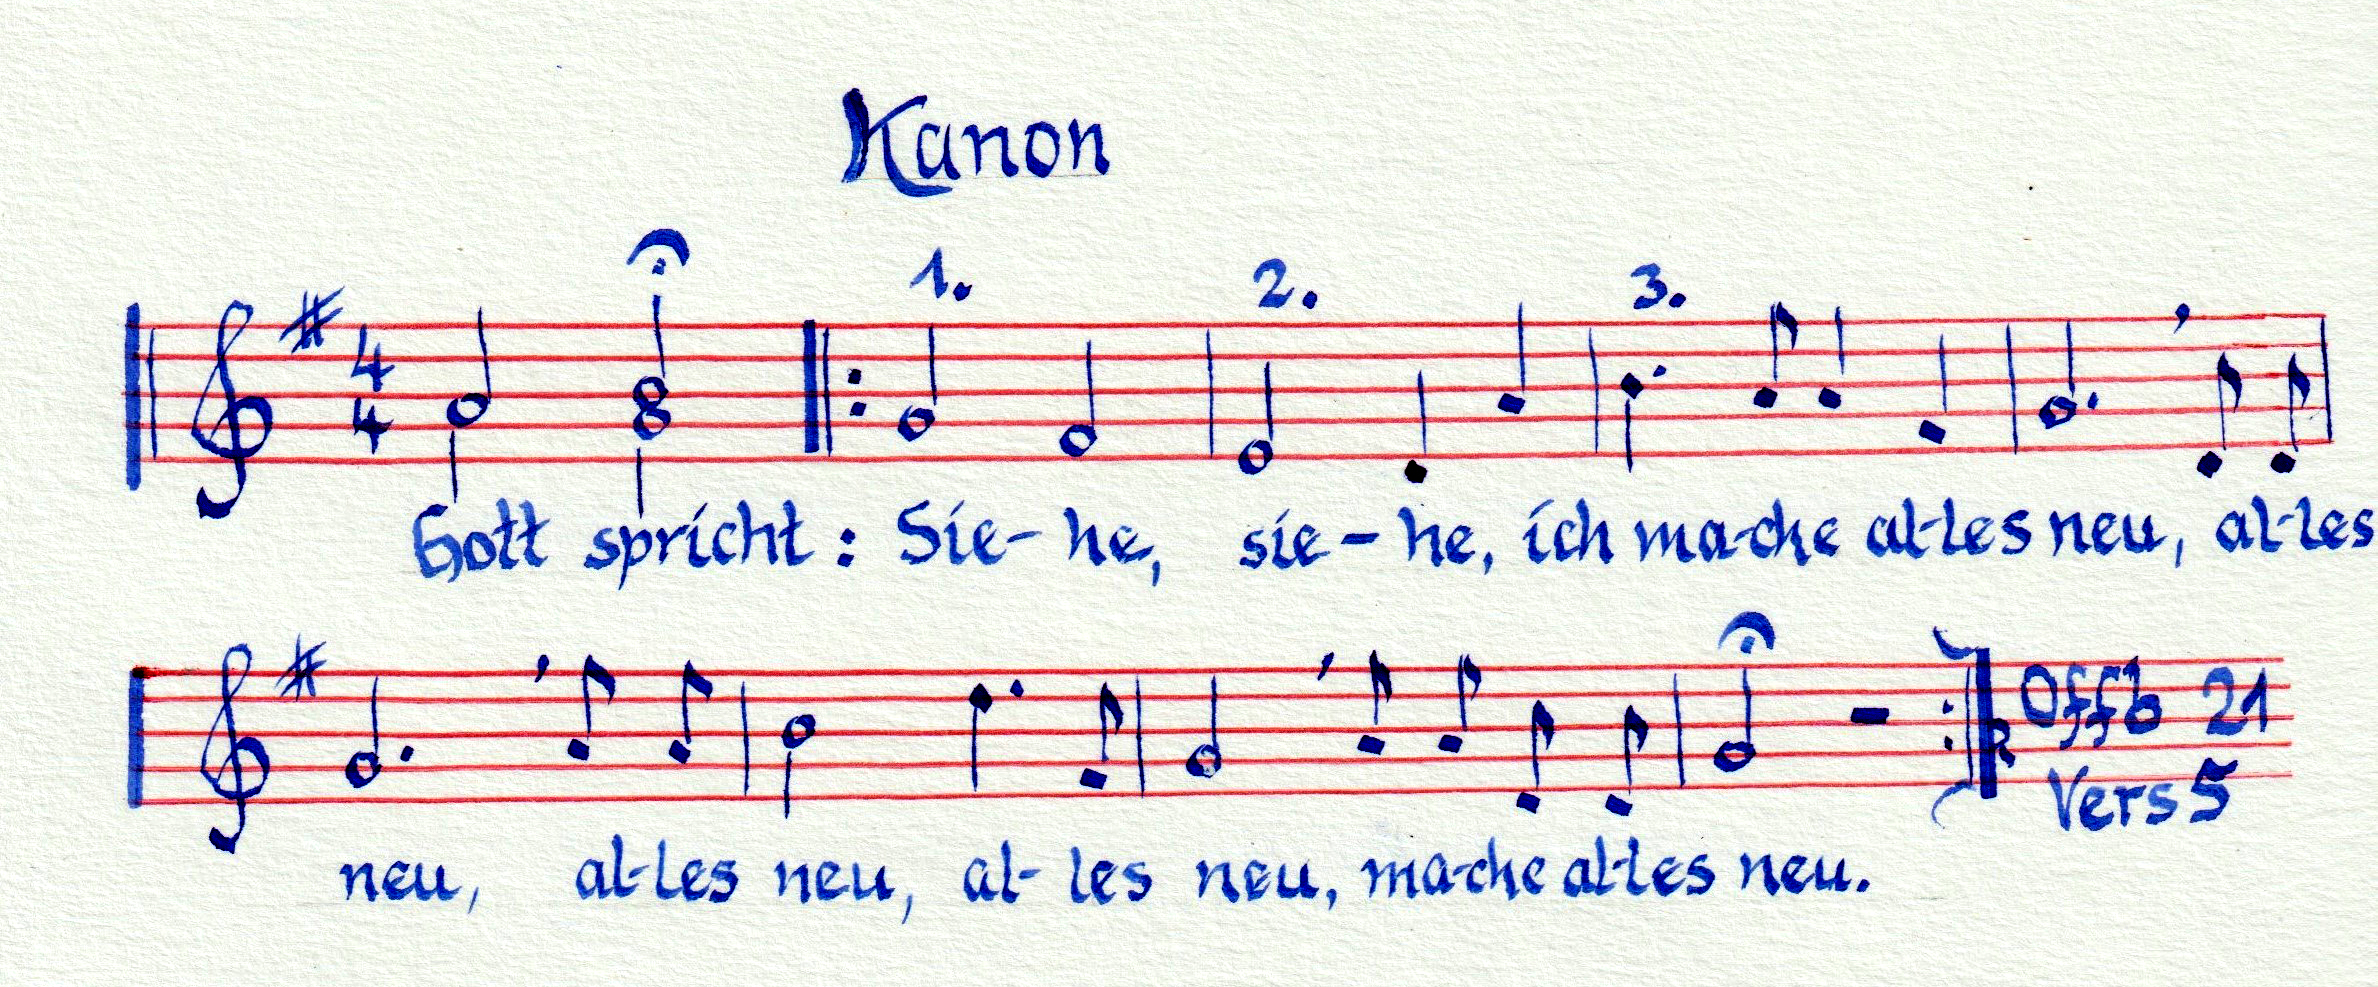 Kanon
1. 2. 3.
4
4
Gott spricht: Sie- he, sie - he, ich ma-che al-les neu, al-les
Offb 21
Vers 5
neu, al-les neu, al- les neu, ma-che al-les neu.